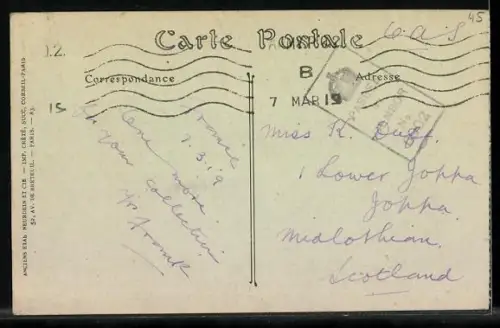 Carte Postale
OAS
45
Correspondance
Adresse
ARMY
B
7 MAR 19
PASSED
CENSOR
No
15
7.3.19
One more
for your collection
Yr Frank
Miss K. Duff.
1 Lower Joppa
Joppa.
Midlothian.
Scotland
ANCIENS ETAB. NEURDEIN ET CIE. — IMP. CRÉTÉ, SUCC. CORBEIL-PARIS
52, AV. DE BRETEUIL. — PARIS. — 83.